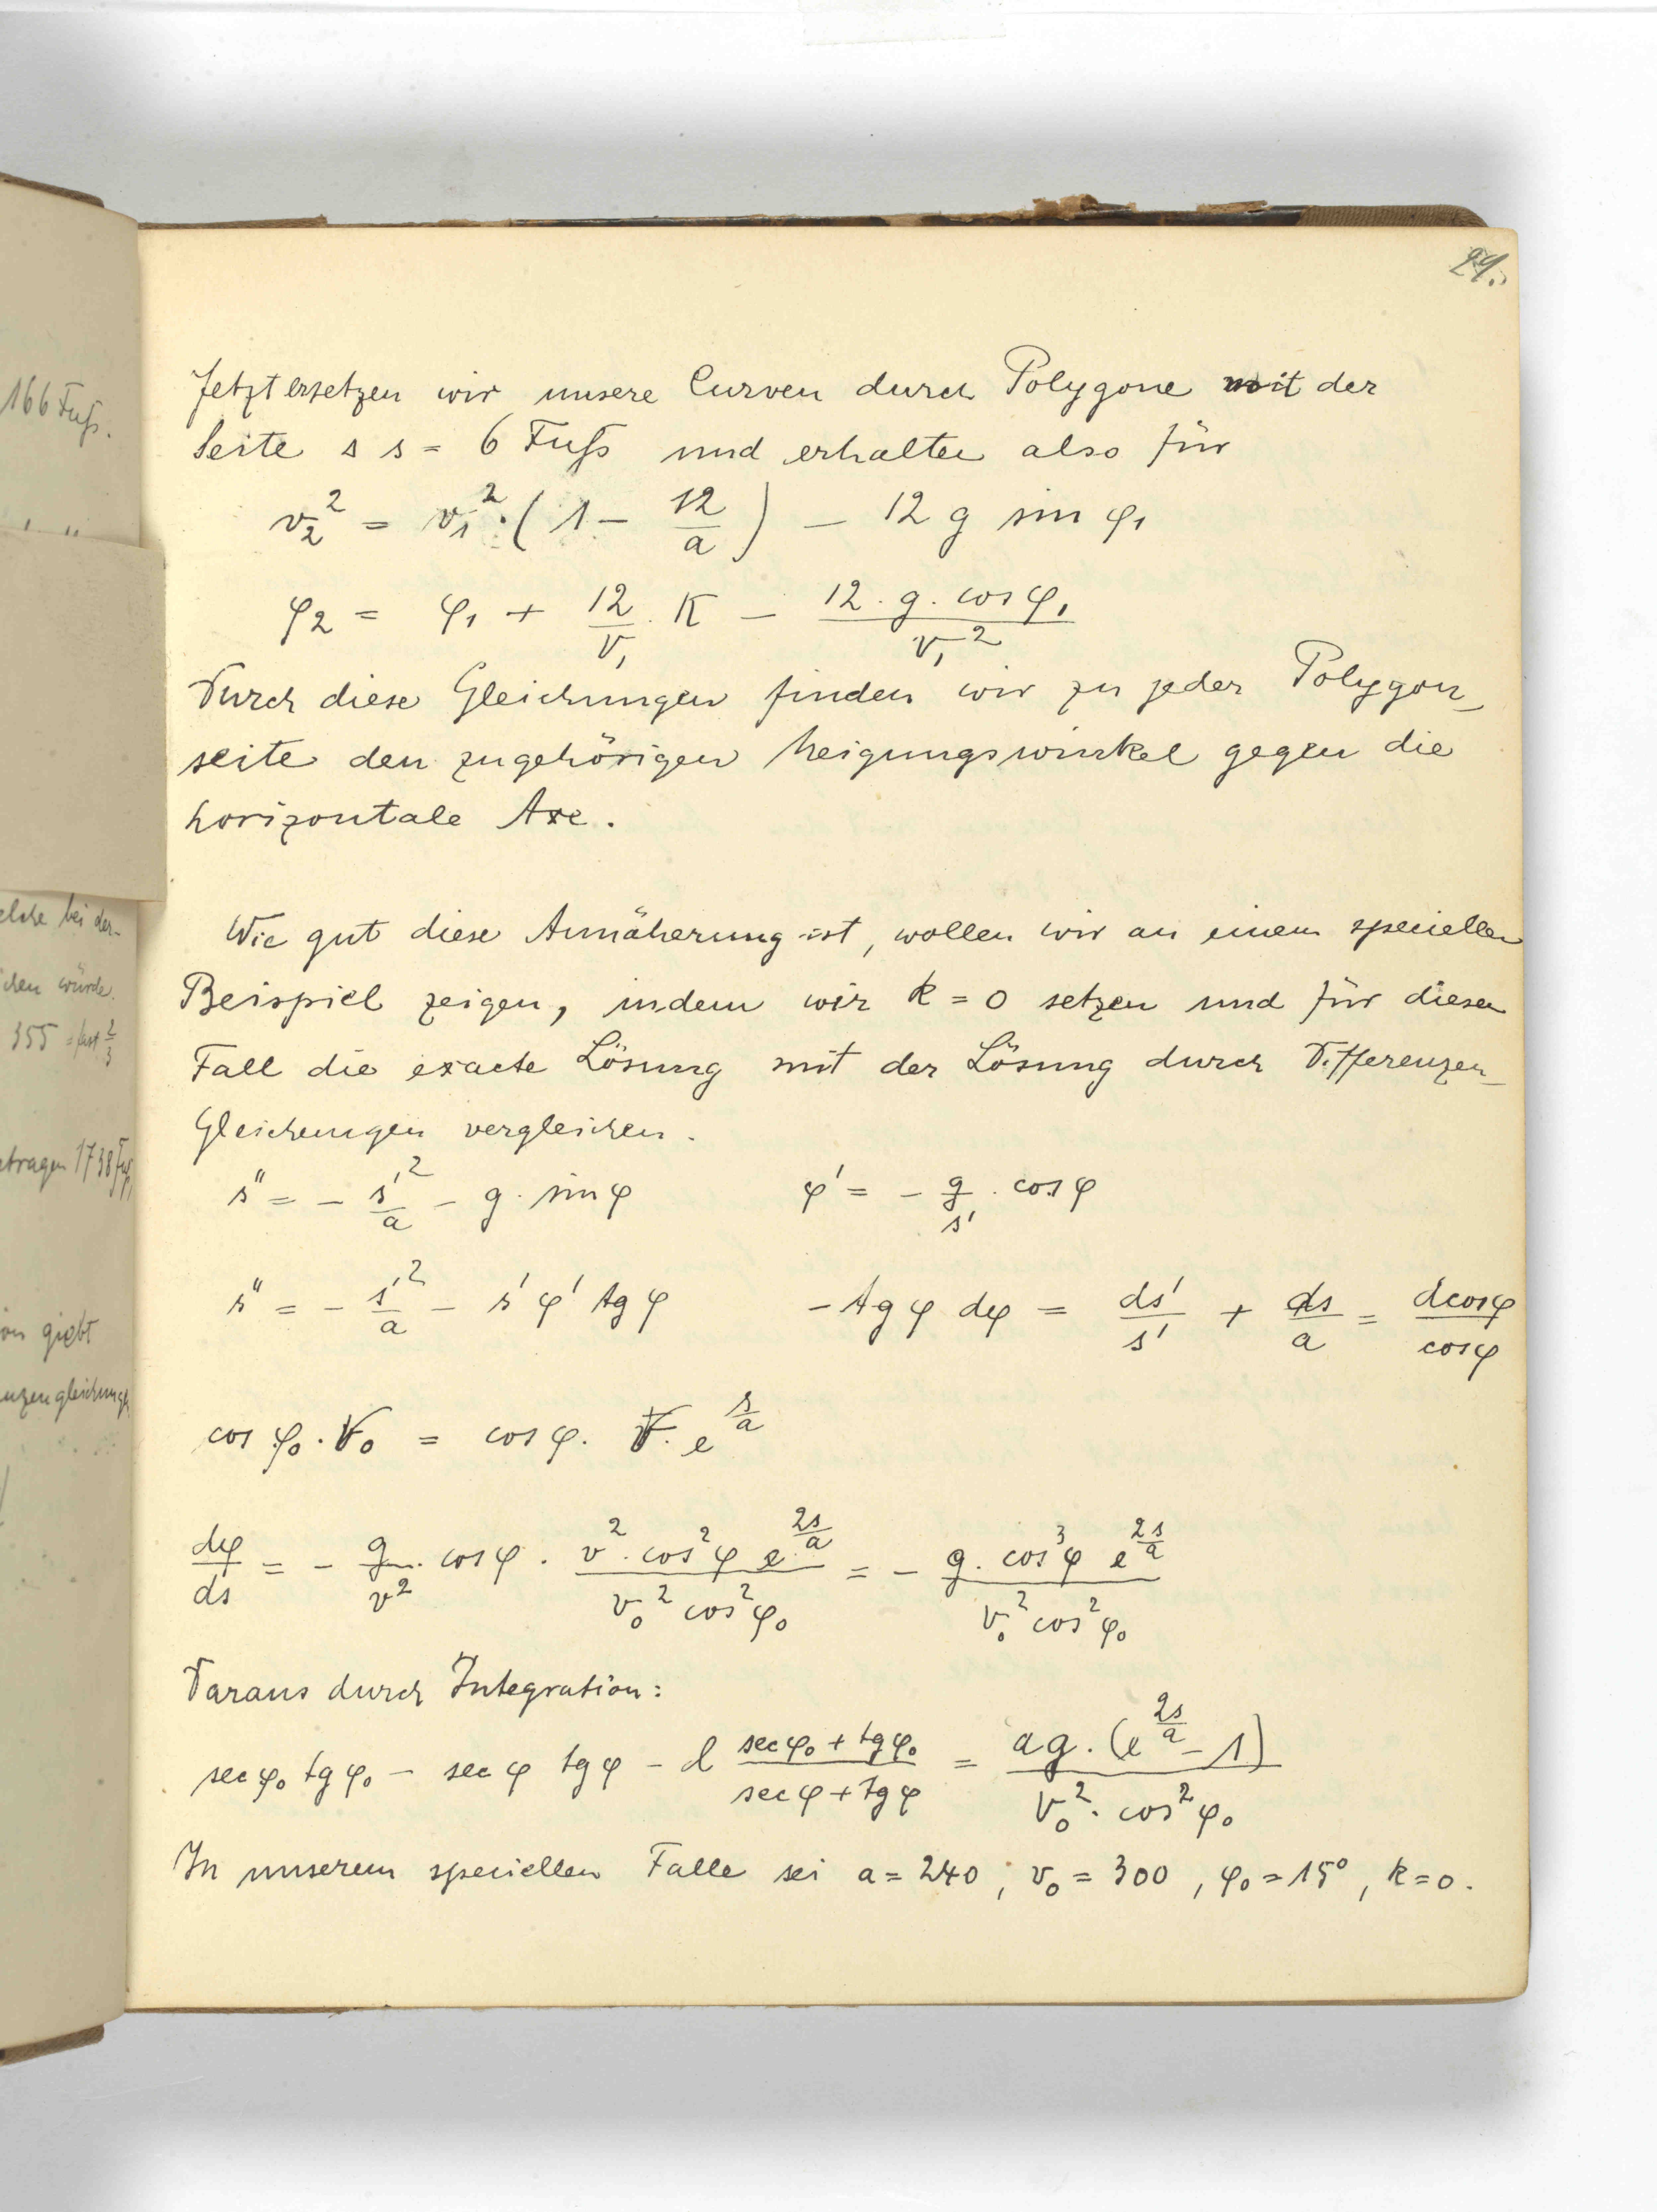 29.
166 Fuß.
elche bei der-
chen würde.
355 = fast 2/3
etragen 1738 Fuß
on giebt
enzengleichung
Jetzt ersetzen wir unsere Curven durch Polygone mit der
Seite s s = 6 Fuß und erhalten also für
v₂² = v₁² · (1 - 12/a) - 12 g sin φ₁
φ₂ = φ₁ + 12/v₁ · K - 12 · g · cos φ₁ / v₁²
Durch diese Gleichungen finden wir zu jeder Polygon_
seite den zugehörigen Neigungswinkel gegen die
horizontale Axe.
Wie gut diese Annäherung ist, wollen wir an einem speciellen
Beispiel zeigen, indem wir k = 0 setzen und für diesen
Fall die exacte Lösung mit der Lösung durch Differenzen_
Gleichungen vergleichen.
s″ = - s′²/a - g · sin φ φ′ = - g/s′ · cos φ
s″ = - s′²/a - s′ φ′ tg φ - tg φ dφ = ds′/s′ + ds/a = dcosφ/cosφ
cos φ₀ · V₀ = cos φ · V · e^(s/a)
dφ/ds = - g/v² · cos φ · v² · cos² φ e^(2s/a) / v₀² cos² φ₀ = - g · cos³ φ e^(2s/a) / v₀² cos² φ₀
Daraus durch Integration:
sec φ₀ tg φ₀ - sec φ tg φ - l (sec φ₀ + tg φ₀)/(sec φ + tg φ) = ag · (e^(2s/a) - 1) / V₀² · cos² φ₀
In unserem speciellen Falle sei a = 240, v₀ = 300, φ₀ = 15°, k = 0.